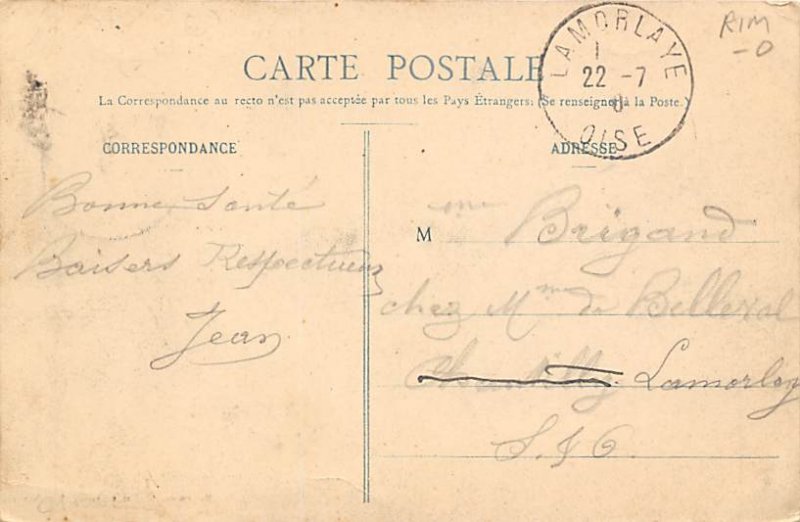 RIM
-0
LAMORLAYE
1
22 -7
0
OISE
CARTE POSTALE
La Correspondance au recto n'est pas acceptée par tous les Pays Étrangers. (Se renseigner à la Poste.)
CORRESPONDANCE
ADRESSE
Bonne Santé
Baisers Respectueux
Jean
M me Brigand
chez Mme de Belleval
Chantilly Lamorlay
S. & O.